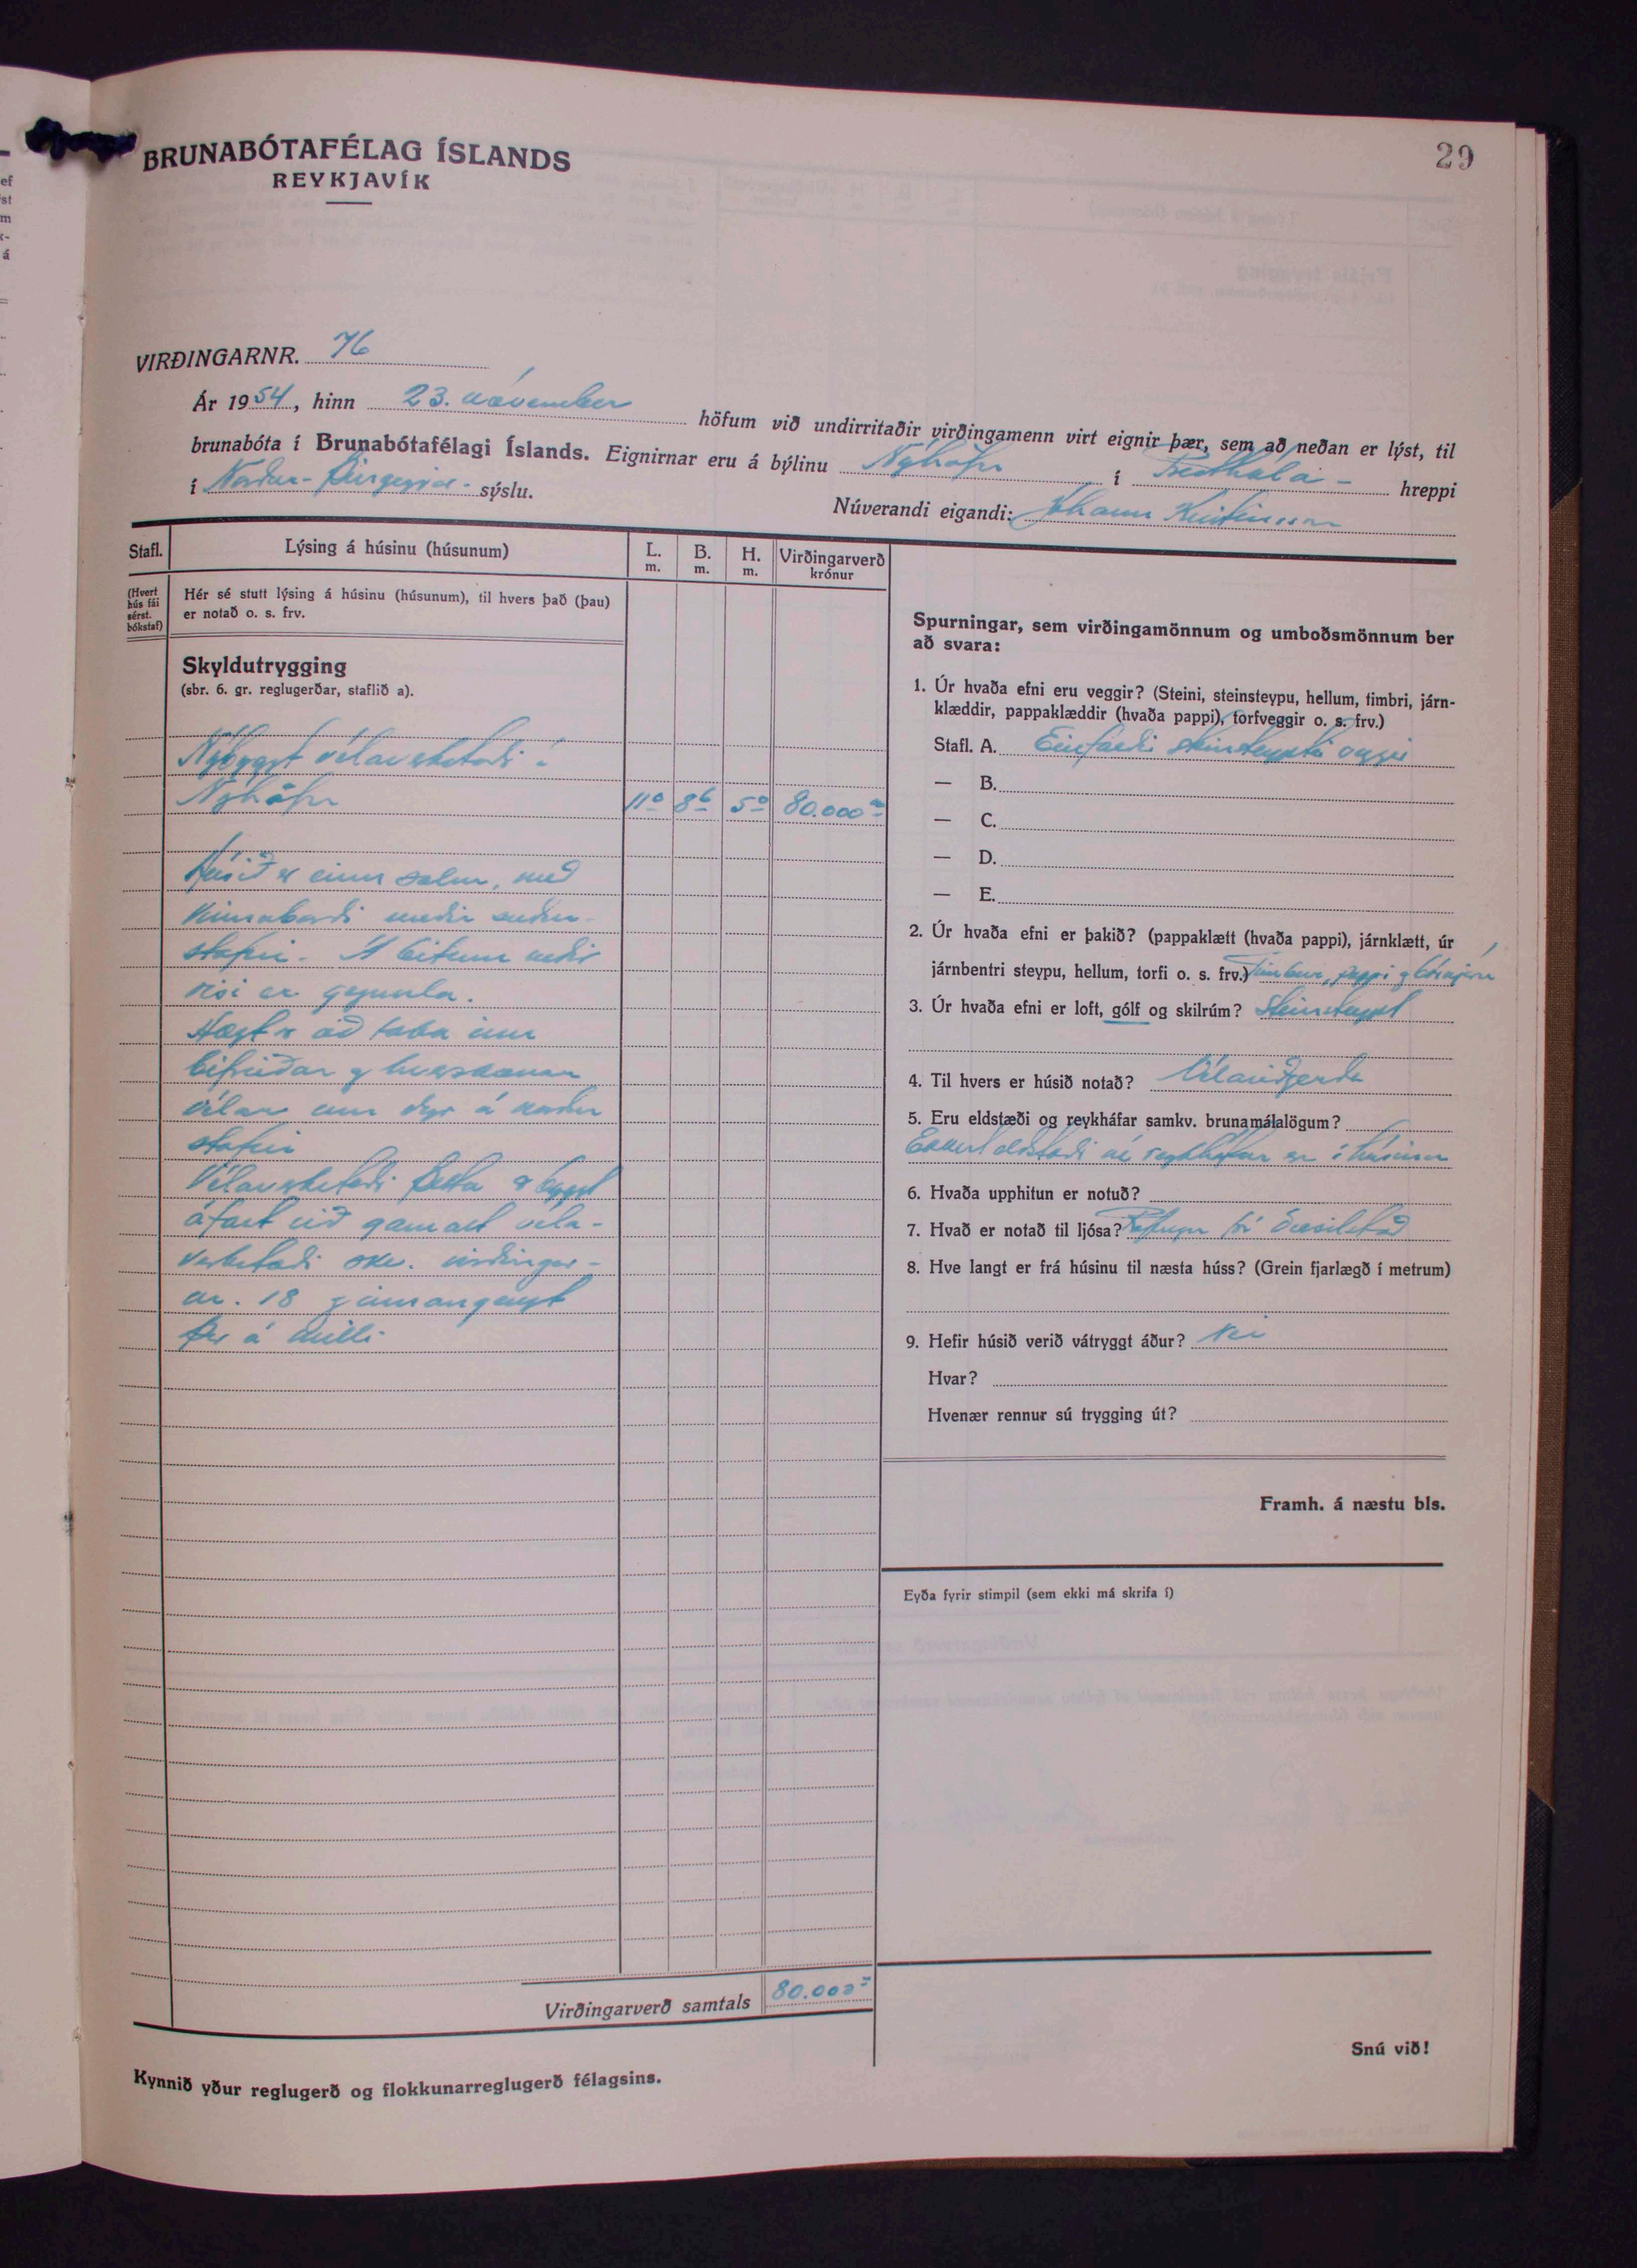 29
BRUNABÓTAFÉLAG ÍSLANDS
REYKJAVÍK
VIRÐINGARNR. 76
Ár 1954, hinn 23. nóvember höfum við undirritaðir virðingamenn virt eignir þær, sem að neðan er lýst, til
brunabóta í Brunabótafélagi Íslands. Eignirnar eru á býlinu Nýhöfn í Presthóla- hreppi
í Norður-Þingeyjar- sýslu.
Núverandi eigandi: Jóhann Kristinsson
Stafl.
Lýsing á húsinu (húsunum)
L. m.
B. m.
H. m.
Virðingarverð krónur
(Hvert hús fái sérst. bókstaf)
Hér sé stutt lýsing á húsinu (húsunum), til hvers það (þau)
er notað o. s. frv.
Skyldutrygging
(sbr. 6. gr. reglugerðar, staflið a).
Nýbyggt vélaverkstæði í
Nýhöfn 110 86 50 80.000
Húsið er einn salur, með
vinnuborði undir suður-
stafni. Í bitum undir
risi er geymsla.
Hægt er að taka inn
bifreiðar og hverskonar
vélar um dyr á norður
stafni
Vélaverkstæði þetta er byggt
áfast við gamalt véla-
verkstæði skv. virðingar-
nr. 18 og innangengt
þar á milli
Virðingarverð samtals 80.000
Kynnið yður reglugerð og flokkunarreglugerð félagsins.
Spurningar, sem virðingamönnum og umboðsmönnum ber
að svara:
1. Úr hvaða efni eru veggir? (Steini, steinsteypu, hellum, timbri, járn-
klæddir, pappaklæddir (hvaða pappi), torfveggir o. s. frv.)
Stafl. A. Einfaldir steinsteyptir veggir
— B.
— C.
— D.
— E.
2. Úr hvaða efni er þakið? (pappaklætt (hvaða pappi), járnklætt, úr
járnbentri steypu, hellum, torfi o. s. frv.) Timbur, pappi og bárujárn
3. Úr hvaða efni er loft, gólf og skilrúm? Steinsteypt
4. Til hvers er húsið notað? Vélaviðgerða
5. Eru eldstæði og reykháfar samkv. brunamálalögum?
Ekkert eldstæði né reykháfur er í húsinu
6. Hvaða upphitun er notuð?
7. Hvað er notað til ljósa? Rafmagn frá
8. Hve langt er frá húsinu til næsta húss? (Grein fjarlægð í metrum)
9. Hefir húsið verið vátryggt áður? Nei
Hvar?
Hvenær rennur sú trygging út?
Framh. á næstu bls.
Eyða fyrir stimpil (sem ekki má skrifa í)
Snú við!